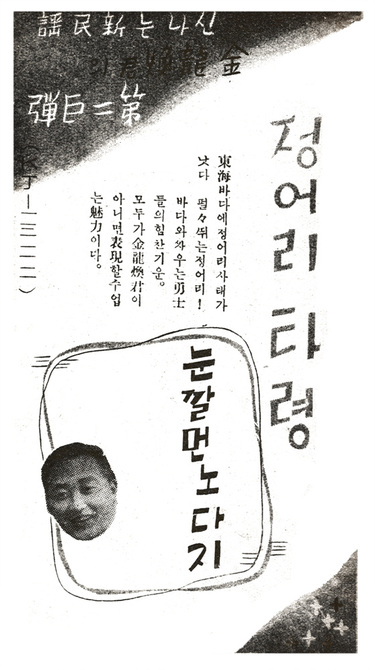 신나는新民謠
金龍煥君의
第二巨彈
정어리 타령
東海바다에정어리사태가
낫다 펄々뛰는정어리!
바다와싸우는勇士
들의힘찬기운。
모두가金龍煥君이
아니면表現할수업
는魅力이다。
눈깔먼노다지